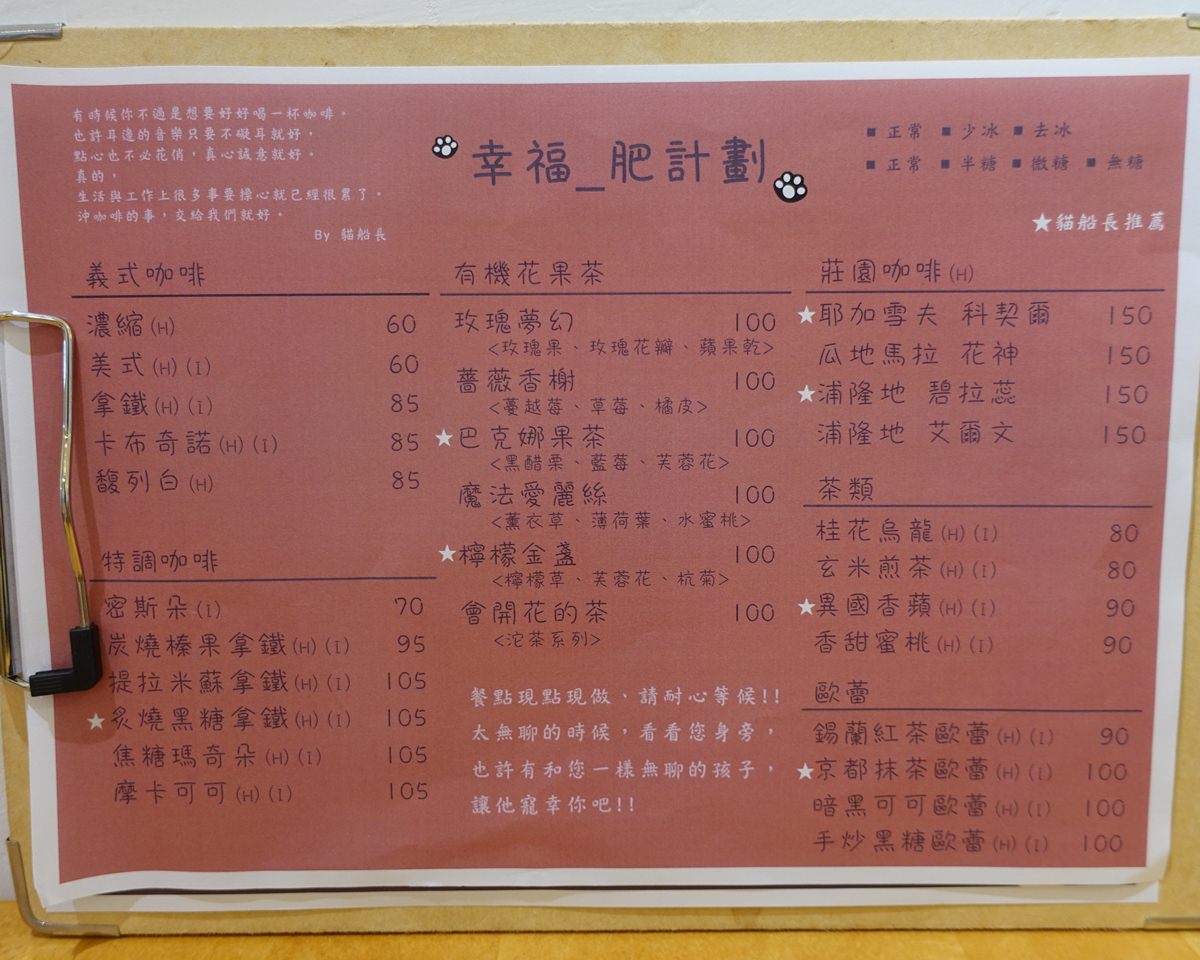 有時候你不過是想要好好喝一杯咖啡。
也許耳邊的音樂只要不礙耳就好，
點心也不必花俏，真心誠意就好。
真的，
生活與工作上很多事要操心就已經很累了。
沖咖啡的事，交給我們就好。
By 貓船長
幸福_肥計劃
■ 正常 ■ 少冰 ■ 去冰
■ 正常 ■ 半糖 ■ 微糖 ■ 無糖
★貓船長推薦
義式咖啡
濃縮(H) 60
美式(H)(I) 60
拿鐵(H)(I) 85
卡布奇諾(H)(I) 85
馥列白(H) 85
特調咖啡
密斯朵(I) 70
炭燒榛果拿鐵(H)(I) 95
提拉米蘇拿鐵(H)(I) 105
★炙燒黑糖拿鐵(H)(I) 105
焦糖瑪奇朵(H)(I) 105
摩卡可可(H)(I) 105
有機花果茶
玫瑰夢幻 100
<玫瑰果、玫瑰花瓣、蘋果乾>
薔薇香榭 100
<蔓越莓、草莓、橘皮>
★巴克娜果茶 100
<黑醋栗、藍莓、芙蓉花>
魔法愛麗絲 100
<薰衣草、薄荷葉、水蜜桃>
★檸檬金盞 100
<檸檬草、芙蓉花、杭菊>
會開花的茶 100
<沱茶系列>
餐點現點現做、請耐心等候!!
太無聊的時候，看看您身旁，
也許有和您一樣無聊的孩子，
讓他寵幸你吧!!
莊園咖啡(H)
★耶加雪夫 科契爾 150
瓜地馬拉 花神 150
★浦隆地 碧拉蕊 150
浦隆地 艾爾文 150
茶類
桂花烏龍(H)(I) 80
玄米煎茶(H)(I) 80
★異國香蘋(H)(I) 90
香甜蜜桃(H)(I) 90
歐蕾
錫蘭紅茶歐蕾(H)(I) 90
★京都抹茶歐蕾(H)(I) 100
暗黑可可歐蕾(H)(I) 100
手炒黑糖歐蕾(H)(I) 100